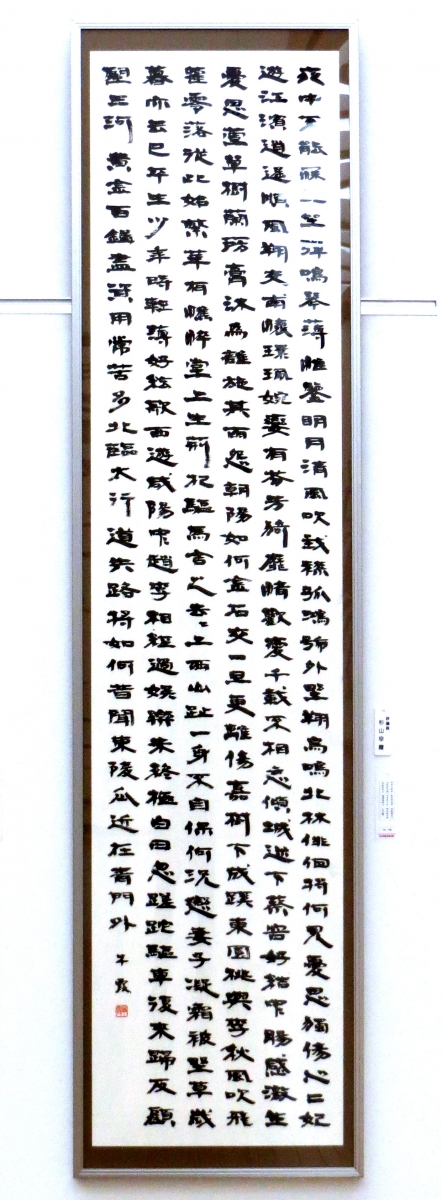 夜中不能寐坐彈鳴琴薄帷鑒明月清風吹我襟孤鴻號外野翔鳥鳴北林俳佪將何見憂思獨傷心二妃
遊江濱逍遥順風翔交甫懷環珮婉孌有芬芳猗靡情歡愛千載不相忘傾城迷下蔡容好結中腸感激生
憂思萱草樹蘭房膏沐為誰施其雨怨朝陽如何金石交一旦更離傷嘉樹下成蹊東園桃與李秋風吹飛
藿零落從此始繁華有憔悴堂上生荊杞驅馬舍之去々上西山趾一身不自保何況戀妻子凝霜被野草歳
暮亦云已平生少年時輕薄好絃歌西遊咸陽中趙李相經過娯樂未終極白日忽蹉跎驅車復來歸反顧
望三河黄金百鎰盡資用常苦多北臨太行道失路將如何昔聞東陵瓜近在青門外
杉山